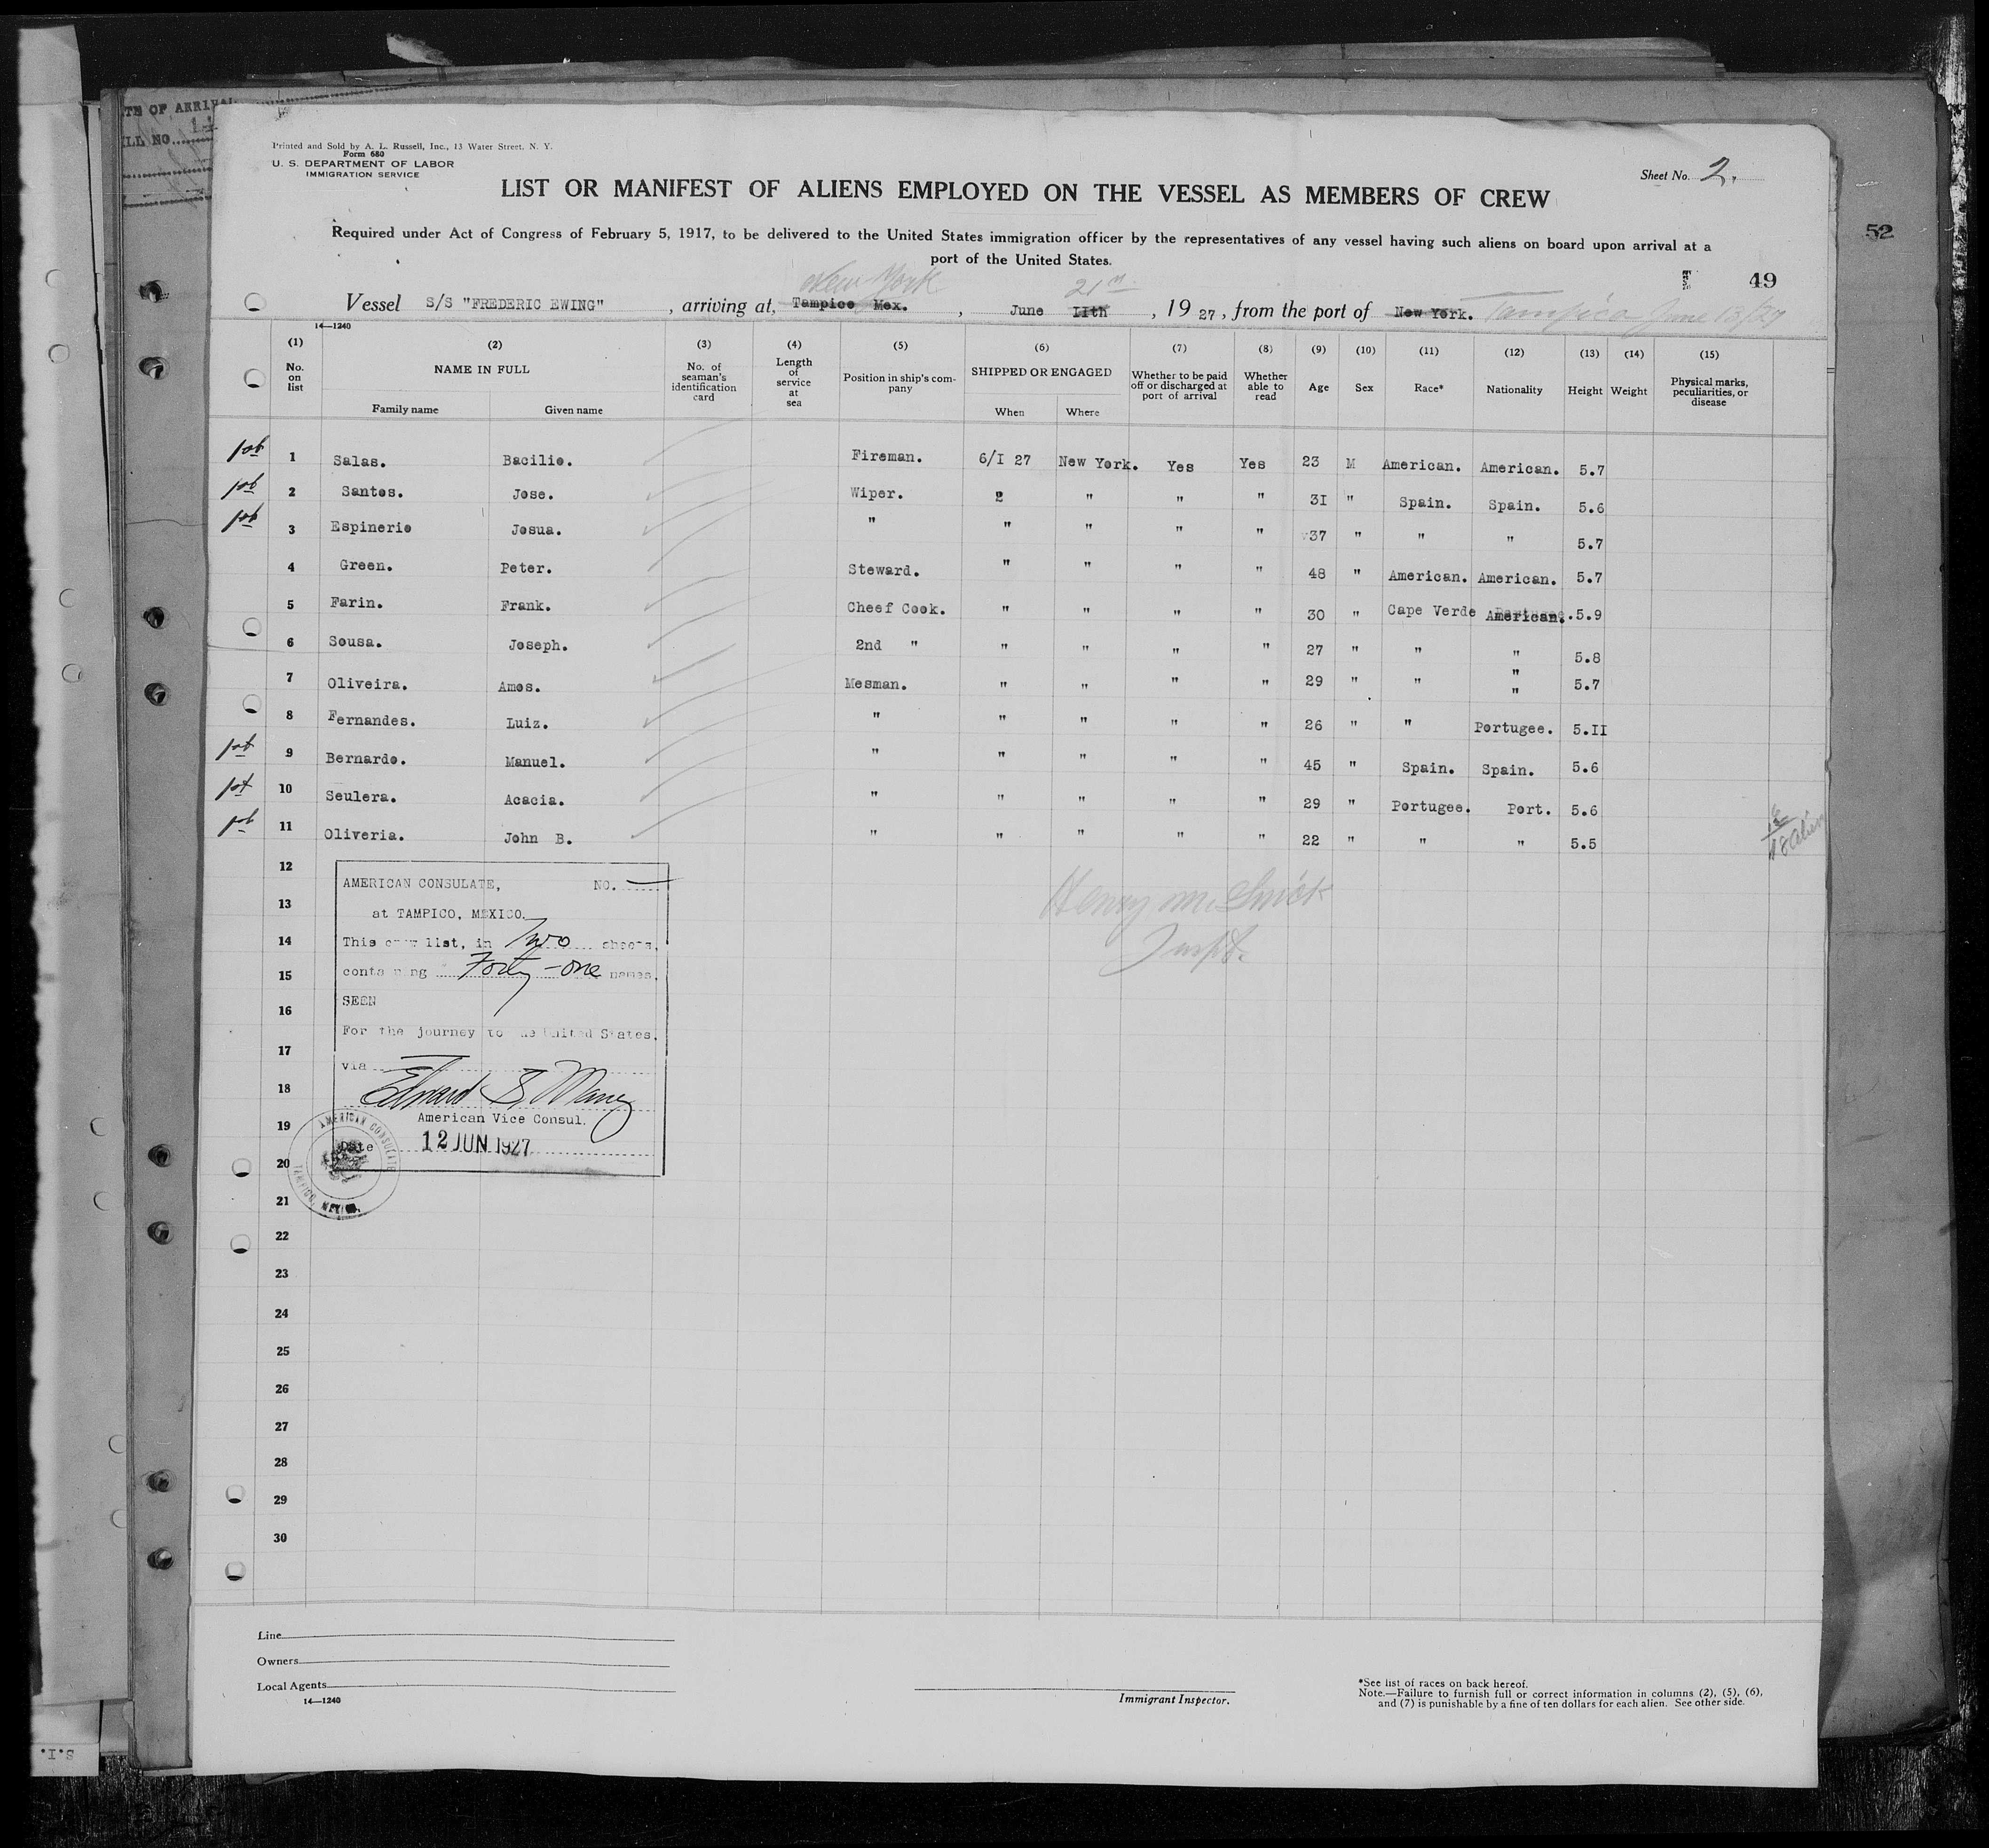 TE OF ARRIVAL
LL NO. 14
52
Printed and Sold by A. L. Russell, Inc., 13 Water Street, N. Y.
Form 680
U. S. DEPARTMENT OF LABOR
IMMIGRATION SERVICE
Sheet No. 2.
LIST OR MANIFEST OF ALIENS EMPLOYED ON THE VESSEL AS MEMBERS OF CREW
Required under Act of Congress of February 5, 1917, to be delivered to the United States immigration officer by the representatives of any vessel having such aliens on board upon arrival at a
port of the United States.
49
New York 21st
Vessel S/S "FREDERIC EWING" , arriving at, Tampico Mex. , June IIth , 1927, from the port of New York. Tampico June 13/27
14—1240
(1) (2) (3) (4) (5) (6) (7) (8) (9) (10) (11) (12) (13) (14) (15)
No. on list NAME IN FULL Family name Given name No. of seaman's identification card Length of service at sea Position in ship's company SHIPPED OR ENGAGED When Where Whether to be paid off or discharged at port of arrival Whether able to read Age Sex Race* Nationality Height Weight Physical marks, peculiarities, or disease
1 Salas. Bacilio. Fireman. 6/I 27 New York. Yes Yes 23 M American. American. 5.7
2 Santos. Jose. Wiper. 2 " " " 3I " Spain. Spain. 5.6
3 Espinerio Josua. " " " " " 37 " " " 5.7
4 Green. Peter. Steward. " " " " 48 " American. American. 5.7
5 Farin. Frank. Cheef Cook. " " " " 30 " Cape Verde American. 5.9
6 Sousa. Joseph. 2nd " " " " " 27 " " " 5.8
7 Oliveira. Amos. Mesman. " " " " 29 " " " " 5.7
8 Fernandes. Luiz. " " " " " 26 " " Portugee. 5.II
9 Bernardo. Manuel. " " " " " 45 " Spain. Spain. 5.6
10 Seulera. Acacia. " " " " " 29 " Portugee. Port. 5.6
11 Oliveria. John B. " " " " " 22 " " " 5.5
12
13
14
15
16
17
18
19
20
21
22
23
24
25
26
27
28
29
30
AMERICAN CONSULATE, NO.
at TAMPICO, MEXICO.
This crew list, in Two sheets,
containing Forty-one names,
SEEN
For the journey to the United States,
via
American Vice Consul.
Date 12 JUN 1927
AMERICAN CONSULATE
TAMPICO, MEXICO.
Inspt.
Line
Owners
Local Agents
14—1240
Immigrant Inspector.
*See list of races on back hereof.
Note.—Failure to furnish full or correct information in columns (2), (5), (6),
and (7) is punishable by a fine of ten dollars for each alien. See other side.
S.I.